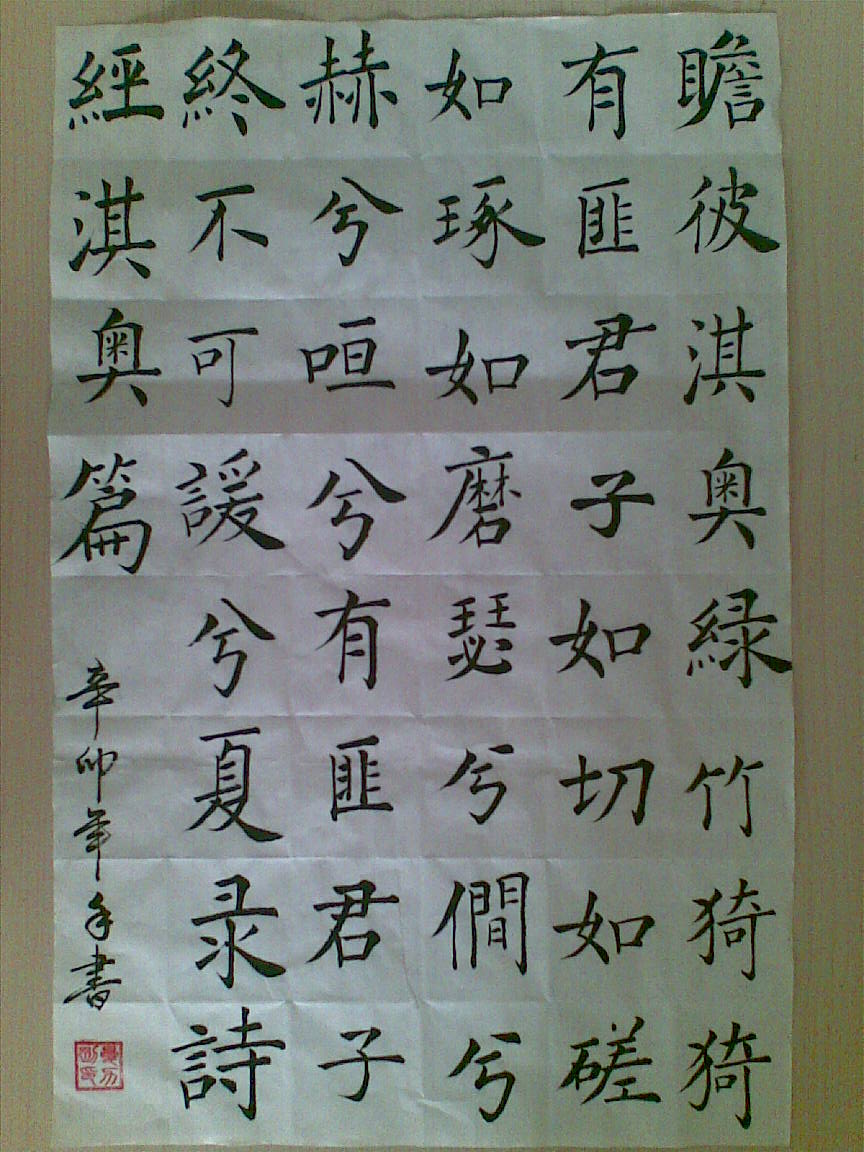 瞻彼淇奥緑竹猗猗
有匪君子如切如磋
如琢如磨瑟兮僴兮
赫兮咺兮有匪君子
終不可諼兮夏录詩
經淇奥篇
辛卯年書